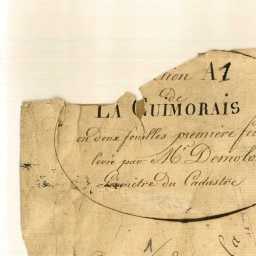 tion A1
de
LA GUIMORAIS
en deux feuilles première fe
levée par Mr. Demolo
Géomètre du Cadastre
la